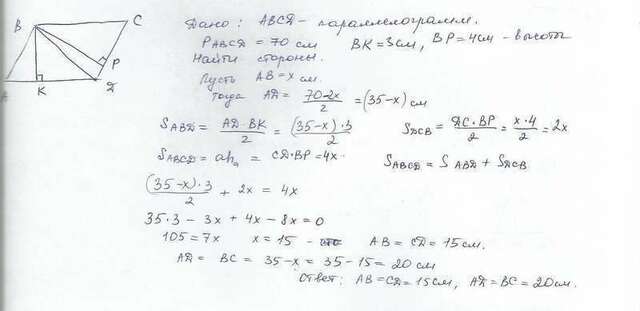 B C
P
A K D
Дано: ABCD - параллелограмм.
PABCD = 70 см BK = 3см, BP = 4см - высоты
Найти стороны.
Пусть AB = x см.
тогда AD = (70-2x)/2 = (35-x) см
SABD = (AD·BK)/2 = ((35-x)·3)/2 SDCB = (DC·BP)/2 = (x·4)/2 = 2x
SABCD = aha = CD·BP = 4x. SABCD = SABD + SDCB
((35-x)·3)/2 + 2x = 4x
35·3 - 3x + 4x - 8x = 0
105 = 7x x = 15 - AB = CD = 15см.
AD = BC = 35-x = 35-15 = 20 см
Ответ: AB = CD = 15см, AD = BC = 20см.